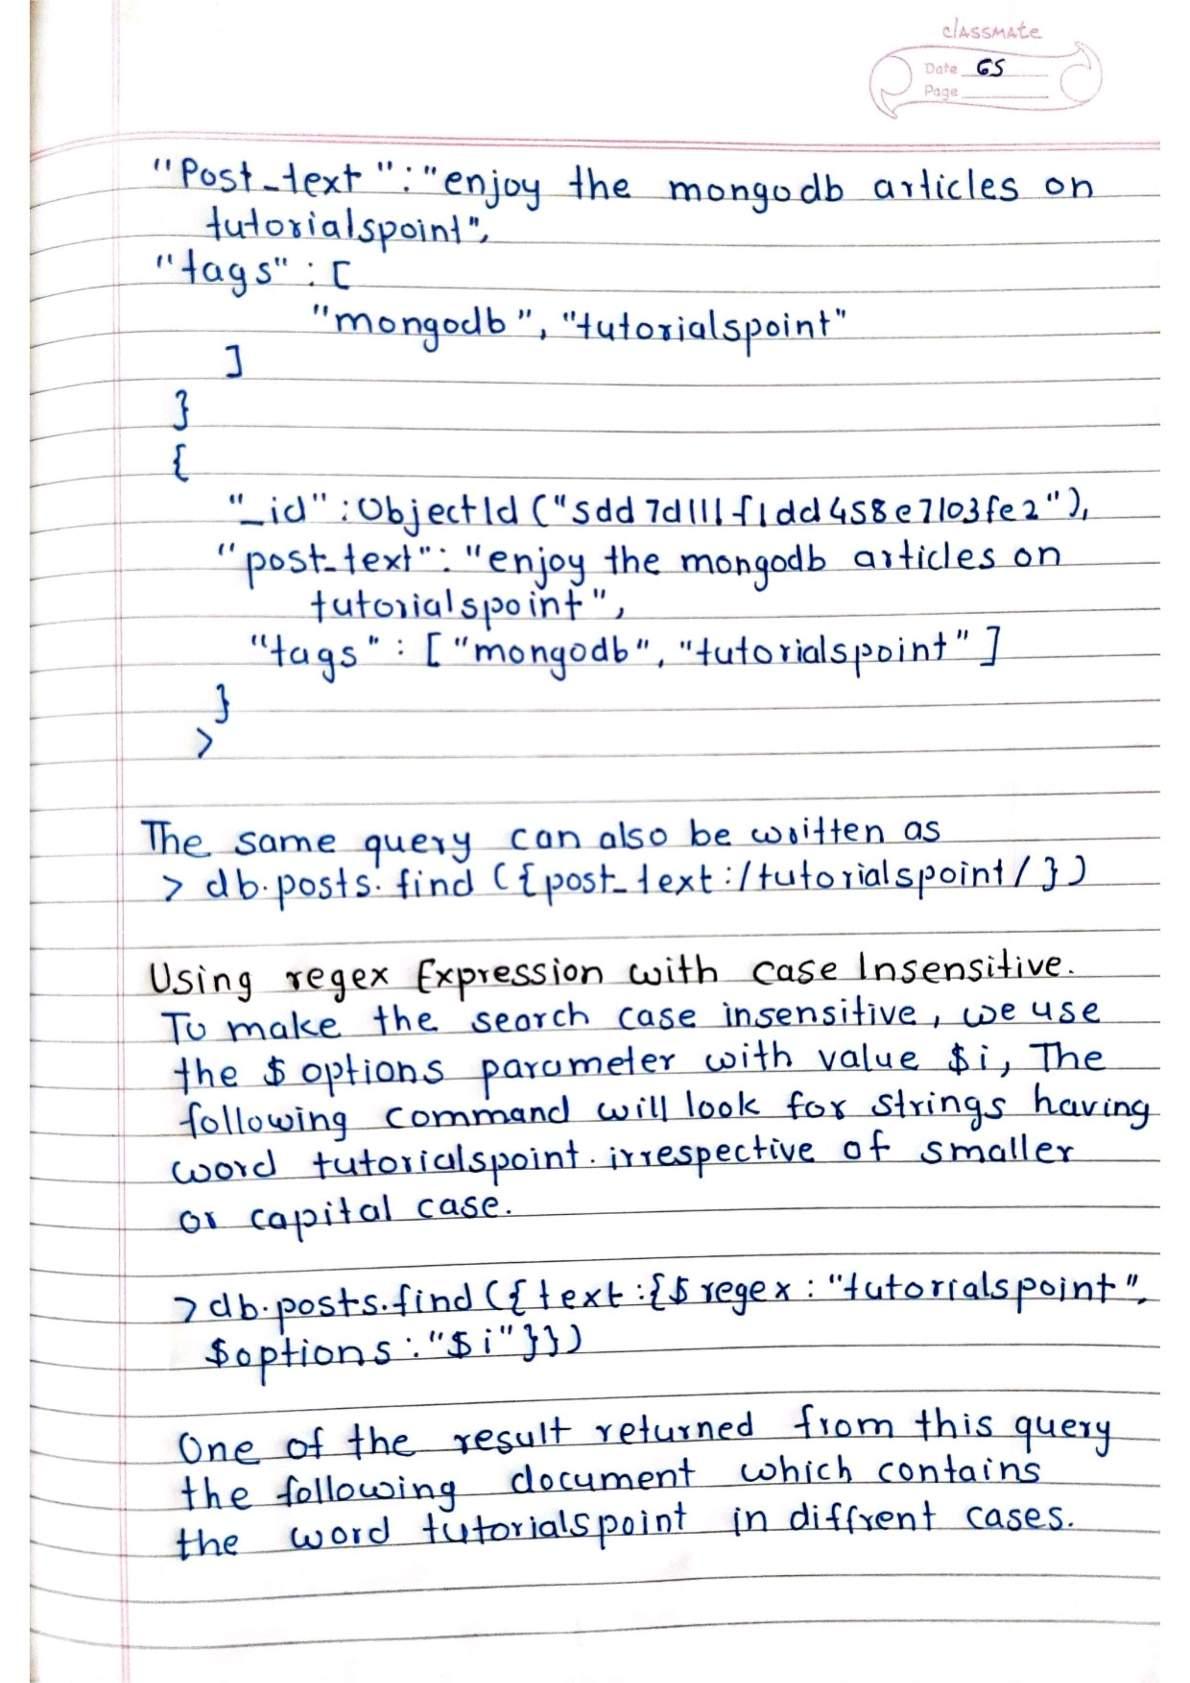 classmate
Date 65
Page
"Post_text":"enjoy the mongodb articles on
tutorialspoint",
"tags" : [
"mongodb", "tutorialspoint"
]
}
{
"_id" : ObjectId ("5dd7d111f1dd458e7103fe2"),
"post_text": "enjoy the mongodb articles on
tutorialspoint",
"tags" : ["mongodb", "tutorialspoint" ]
}
>
The same query can also be written as
> db.posts.find ({post_text:/tutorialspoint/})
Using regex Expression with case Insensitive.
To make the search case insensitive, we use
the $options parameter with value $i, The
following command will look for strings having
word tutorialspoint. irrespective of smaller
or capital case.
>db.posts.find ({text:{$regex : "tutorialspoint",
$options : "$i"}})
One of the result returned from this query
the following document which contains
the word tutorialspoint in diffrent cases.